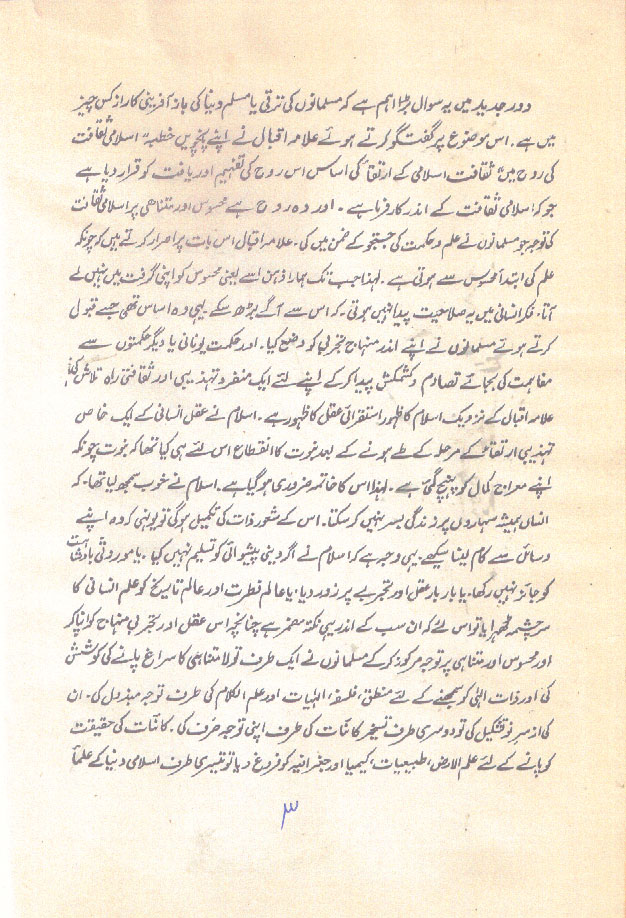 دور جدید میں یہ سوال بڑا اہم ہے کہ مسلمانوں کی ترقی یا مسلم دنیا کی باز آفرینی کا راز کس چیز
میں ہے۔ اس موضوع پر گفتگو کرتے ہوئے علامہ اقبال نے اپنے پانچویں خطبہ "اسلامی ثقافت
کی روح میں" ثقافت اسلامی کے ارتقاء کی اساس اس روح کی تفہیم اور یافت کو قرار دیا ہے
جو کہ اسلامی ثقافت کے اندر کارفرما ہے۔ اور وہ روح ہے محسوس اور متناہی پر اسلامی ثقافت
کی توجہ جو مسلمانوں نے علم و حکمت کی جستجو کے ضمن میں کی۔ علامہ اقبال اس بات پر اصرار کرتے ہیں کہ چونکہ
علم کی ابتدا محسوس سے ہوتی ہے۔ لہذا جب تک ہمارا ذہن اسے یعنی محسوس کو اپنی گرفت میں نہیں لے
آتا۔ فکر انسانی میں یہ صلاحیت پیدا نہیں ہوتی۔ کہ اس سے آگے بڑھ سکے یہی وہ اساس تھی جسے قبول
کرتے ہوئے مسلمانوں نے اپنے اندر منہاج تجربی کو وضع کیا۔ اور حکمت یونانی یا دیگر حکمتوں سے
مفاہمت کی بجائے تصادم و کشمکش پیدا کر کے اپنے لئے ایک منفرد تہذیبی اور ثقافتی راہ تلاش کی۔
علامہ اقبال کے نزدیک اسلام کا ظہور استقرائی عقل کا ظہور ہے۔ اسلام نے عقل انسانی کے ایک خاص
تہذیبی ارتقاء کے مرحلہ کے طے ہونے کے بعد نبوت کا انقطاع اس لئے ہی کیا تھا کہ نبوت چونکہ
اپنے معراج کمال کو پہنچ گئی ہے۔ لہذا اس کا خاتمہ ضروری ہو گیا ہے۔ اسلام نے خوب سمجھ لیا تھا۔ کہ
انساں ہمیشہ سہاروں پر زندگی بسر نہیں کر سکتا۔ اس کے شعور ذات کی تکمیل ہو گی تو یونہی کہ وہ اپنے
وسائل سے کام لینا سیکھے۔ یہی وجہ ہے کہ اسلام نے اگر دینی پیشوائی کو تسلیم نہیں کیا۔ یا موروثی بادشاہت
کو جائز نہیں رکھا۔ یا بار بار عقل اور تجربے پر زور دیا۔ یا عالم فطرت اور عالم تاریخ کو علم انسانی کا
سرچشمہ ٹھہرایا تو اس لئے کہ ان سب کے اندر یہی نکتہ مضمر ہے چنانچہ اس عقل اور تجربی منہاج کو اپنا کر
اور محسوس اور متناہی پر توجہ مرکوز کر کے مسلمانوں نے ایک طرف تو لامتناہی کا سراغ پانے کی کوشش
کی اور ذات الٰہی کو سمجھنے کے لئے منطق، فلسفہ، الٰہیات اور علم الکلام کی طرف توجہ مبذول کی۔ ان
کی از سر نو تشکیل کی تو دوسری طرف تسخیر کائنات کی طرف اپنی توجہ صرف کی۔ کائنات کی حقیقت
کو پانے کے لئے علم الارض، طبیعیات، کیمیا اور جغرافیہ کو فروغ دیا تو تیسری طرف اسلامی دنیا کے علماء
۳